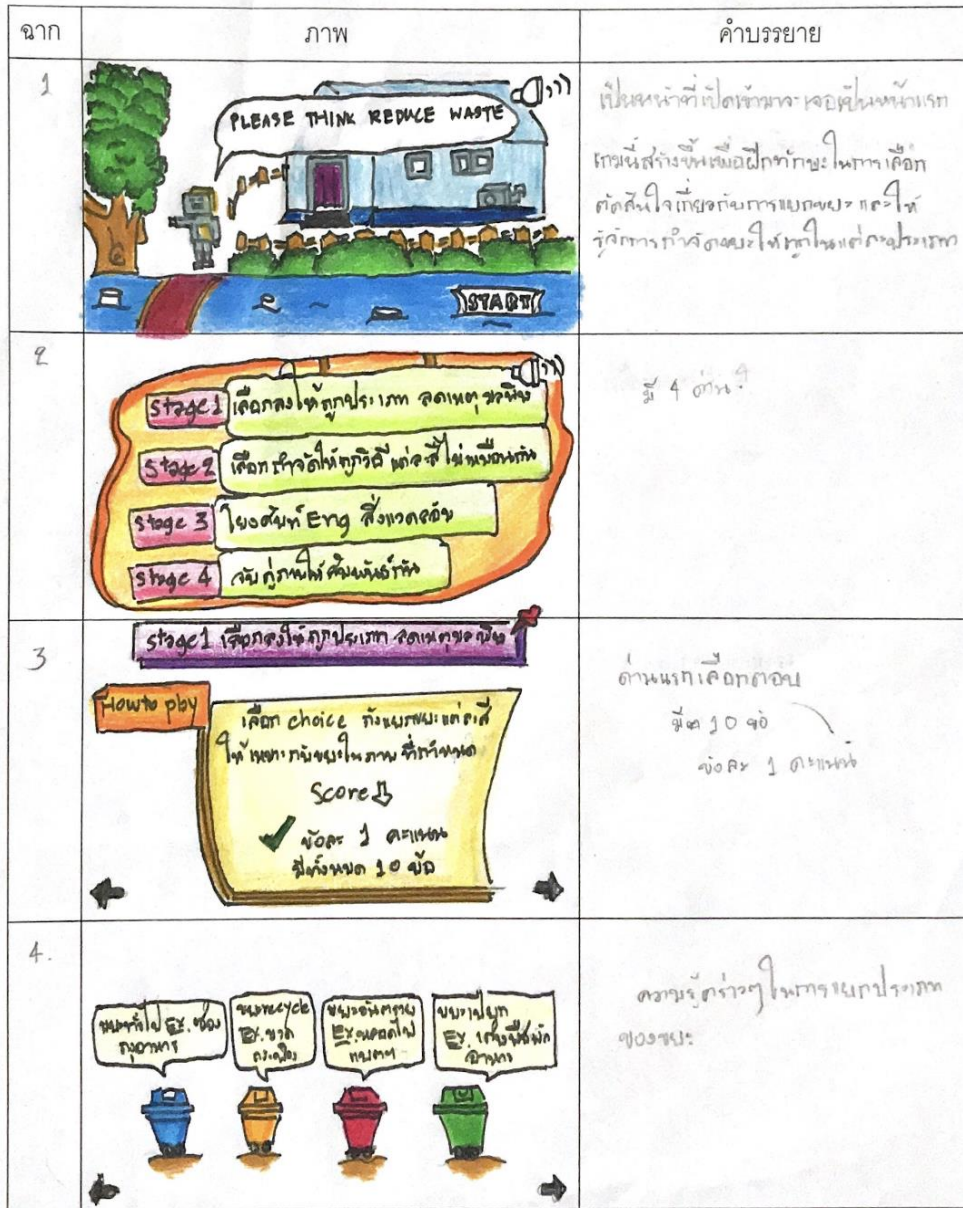 ฉาก
ภาพ
คำบรรยาย
1
PLEASE THINK REDUCE WASTE
START
เป็นหน้าที่เปิดเข้ามาจะเจอเป็นหน้าแรก
เกมนี้สร้างขึ้นเพื่อฝึกทักษะในการเลือก
ตัดสินใจเกี่ยวกับการแยกขยะ และให้
รู้จักการกำจัดขยะให้ถูกในแต่ละประเภท
2
Stage 1 เลือกลงให้ถูกประเภท ลดเหตุมลพิษ
Stage 2 เลือกกำจัดให้ถูกวิธี แต่ละสีไม่เหมือนกัน
Stage 3 โยงศัพท์ Eng สิ่งแวดล้อม
Stage 4 จับคู่ภาพให้สัมพันธ์กัน
มี 4 ด่าน
3
Stage 1 เลือกลงให้ถูกประเภท ลดเหตุมลพิษ
How to play
เลือก choice ถังแยกขยะแต่ละสี
ให้เหมาะกับขยะในภาพ ที่กำหนด
Score
ข้อละ 1 คะแนน
มีทั้งหมด 10 ข้อ
ด่านแรกเลือกตอบ
มี 10 ข้อ
ข้อละ 1 คะแนน
4.
ขยะทั่วไป EX. ซอง
ถุงอาหาร
ขยะrecycle
EX. ขวด
กระป๋อง
ขยะอันตราย
EX. หลอดไฟ
ขยะเปียก
EX. เศษพืชผัก
อาหาร
ความรู้คร่าวๆ ในการแยกประเภท
ของขยะ